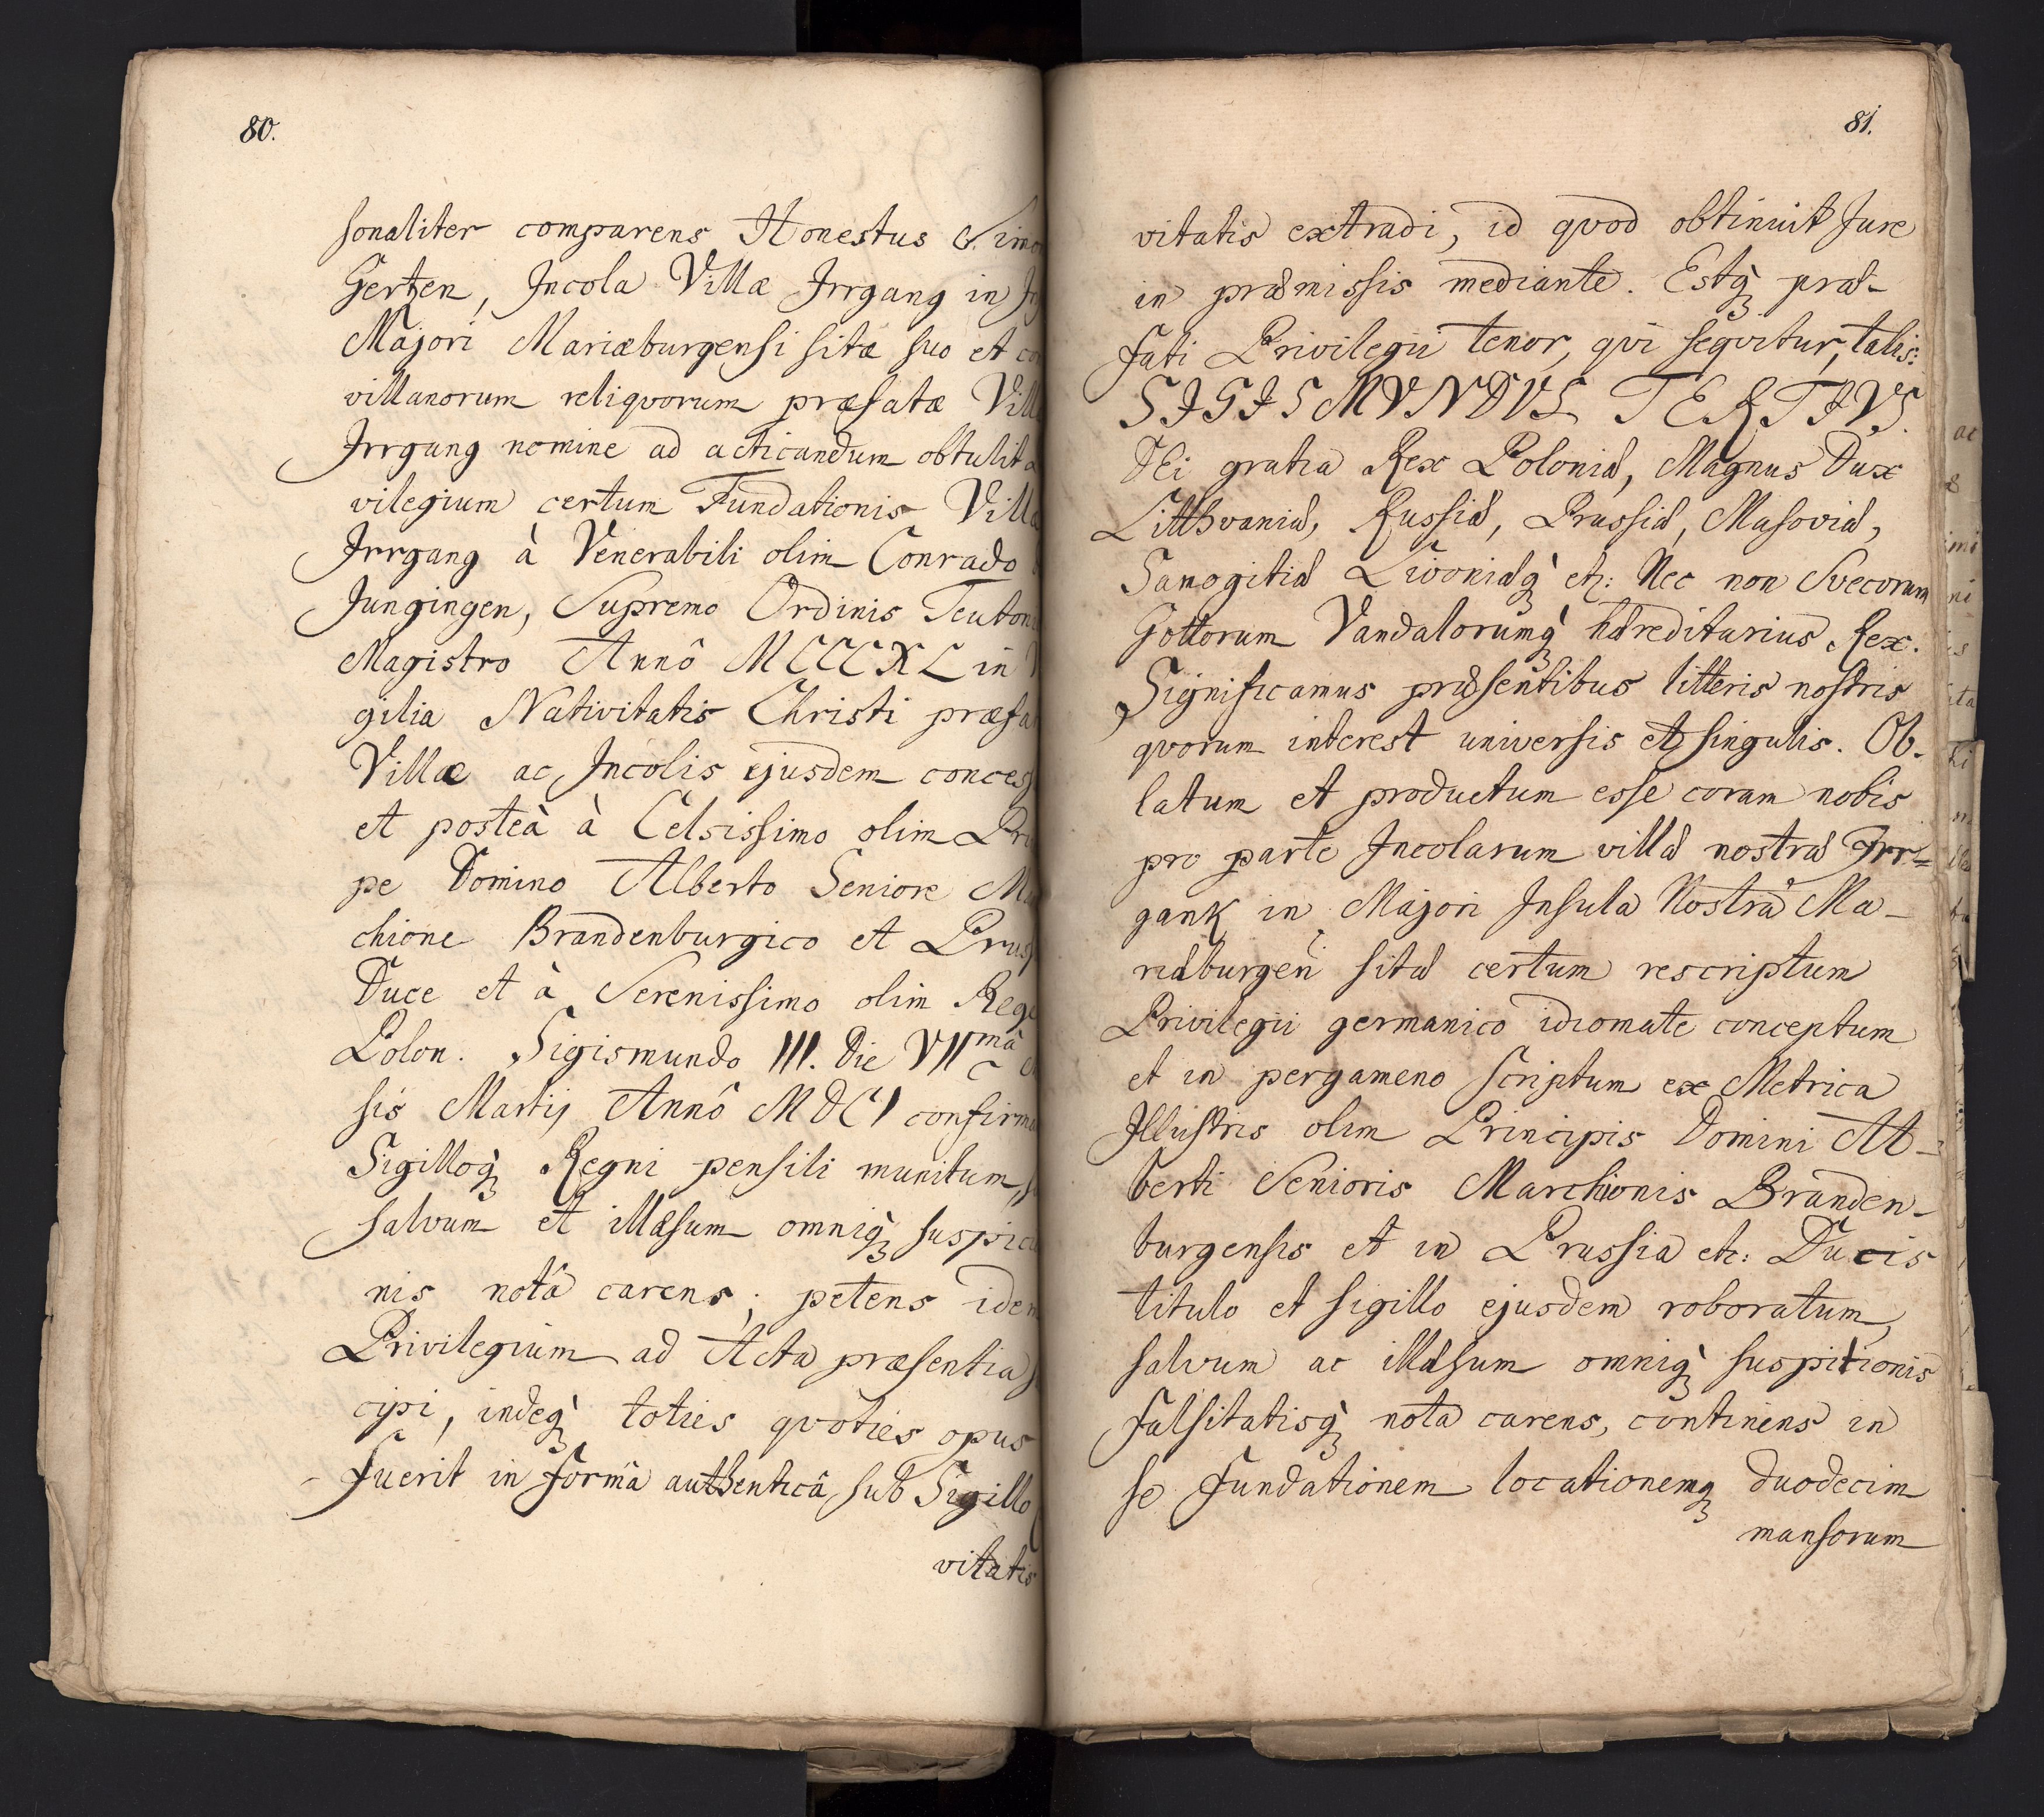 80.
sonaliter comparens Honestus Simo
Gertzen, Incola Villæ Irrgang in In
Majori Mariæburgensi sitæ suo et co
villanorum reliqvorum præfatæ Vill
Irrgang nomine ad acticandum obtulit
vilegium certum Fundationis Villæ
Irrgang à Venerabili olim Conrado
Jungingen, Supremo Ordinis Teuton
Magistro Annô MCCCXL in
gilia Nativitatis Christi præfa
Villæ ac Incolis ejusdem conces
et posteà à Celsissimo olim Pri
pe Domino Alberto Seniore Ma
chione Brandenburgico et Prus
Duce et à Serenissimo olim Rege
Polon. Sigismundo III. Die VIImâ
sis Martij Annô MDCI confirma
Sigilloq́ꝫ Regni pensili munitum,
salvum et illæsum omniq́ꝫ suspicio
nis notâ carens; petens idem
Privilegium ad Acta præsentia
cipi, indeq́ꝫ toties qvoties opus
fuerit in formâ authenticâ, sub Sigillo
vitatis
81.
vitatis extradi, id qvod obtinuit Jure
in præmissis mediante. Estq́ꝫ præ-
fati Privilegii tenor, qvi seqvitur, talis:
SIGISMVNDVS TERTIVS.
DEi gratia Rex Poloniæ, Magnus Dux
Litthvaniæ, Russiæ, Prussiæ, Masoviæ,
Samogitiæ Livoniæq́ꝫ etc: Nec non Svecorum
Gottorum Vandalorumq́ꝫ hæreditarius Rex.
Significamus præsentibus litteris nostris
qvorum interest universis et singulis. Ob-
latum et productum esse coram nobis
pro parte Incolarum villæ nostræ Irr=
gank in Majori Insula Nostra Ma-
riæburgeń sitæ certum rescriptum
Privilegii germanico idiomate conceptum
et in pergameno scriptum ex Metrica
Illustris olim Principis Domini Al-
berti Senioris Marchionis Branden-
burgensis et in Prussia etc: Ducis
titulo et sigillo ejusdem roboratum,
salvum ac illæsum omniq́ꝫ suspitionis
falsitatisq́ꝫ nota carens, continens in
se Fundationem locationemqꝫ duodecim
mansorum